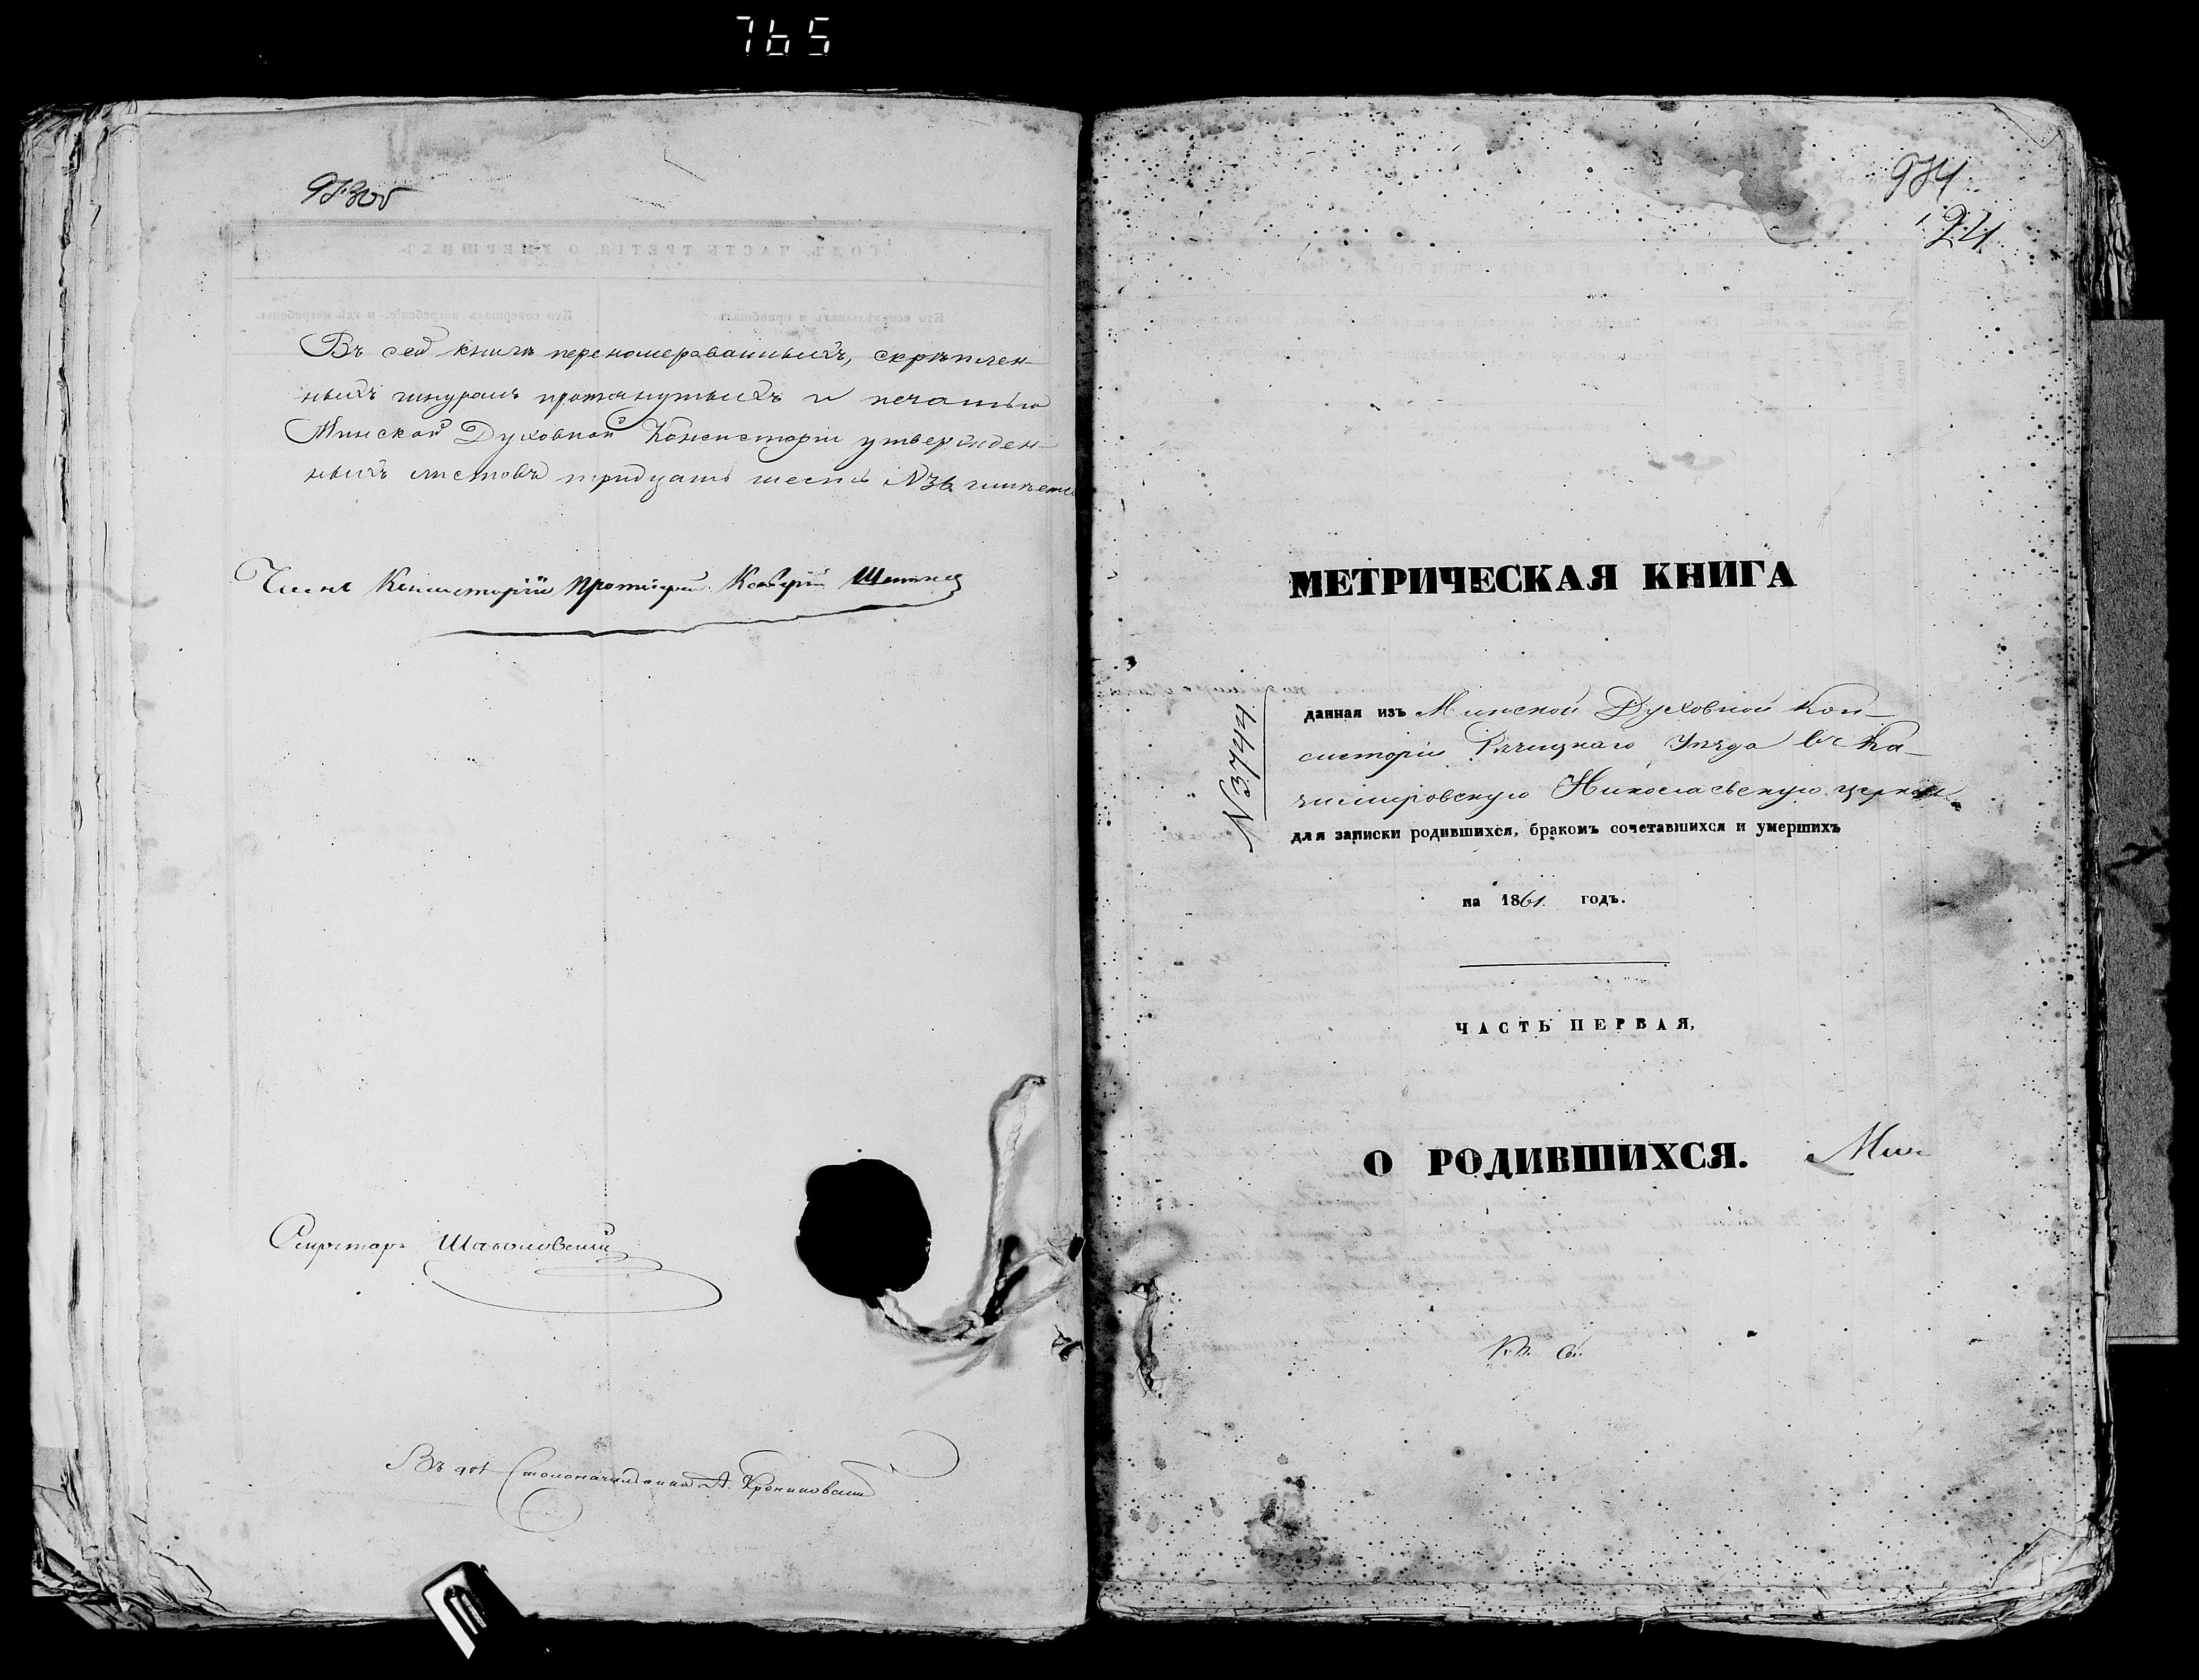 765
973об
Въ сей книгѣ перенумерованныхъ, скрѣплен-
ныхъ шнуромъ протянутыхъ и печатью
Минской Духовной Консисторіи утвержден-
ныхъ листовъ тридцать шесть №36 имѣется
Членъ Консисторіи Протоіерей
Секретарь
Столоначальника А.
974
24
МЕТРИЧЕСКАЯ КНИГА
№3744
данная изъ Минской Духовной Кон-
систоріи Рѣчицкаго Уѣзда въ Ка-
зимировскую Николаевскую церковь
для записки родившихся, бракомъ сочетавшихся и умершихъ
на 1861. годъ.
ЧАСТЬ ПЕРВАЯ,
О РОДИВШИХСЯ.